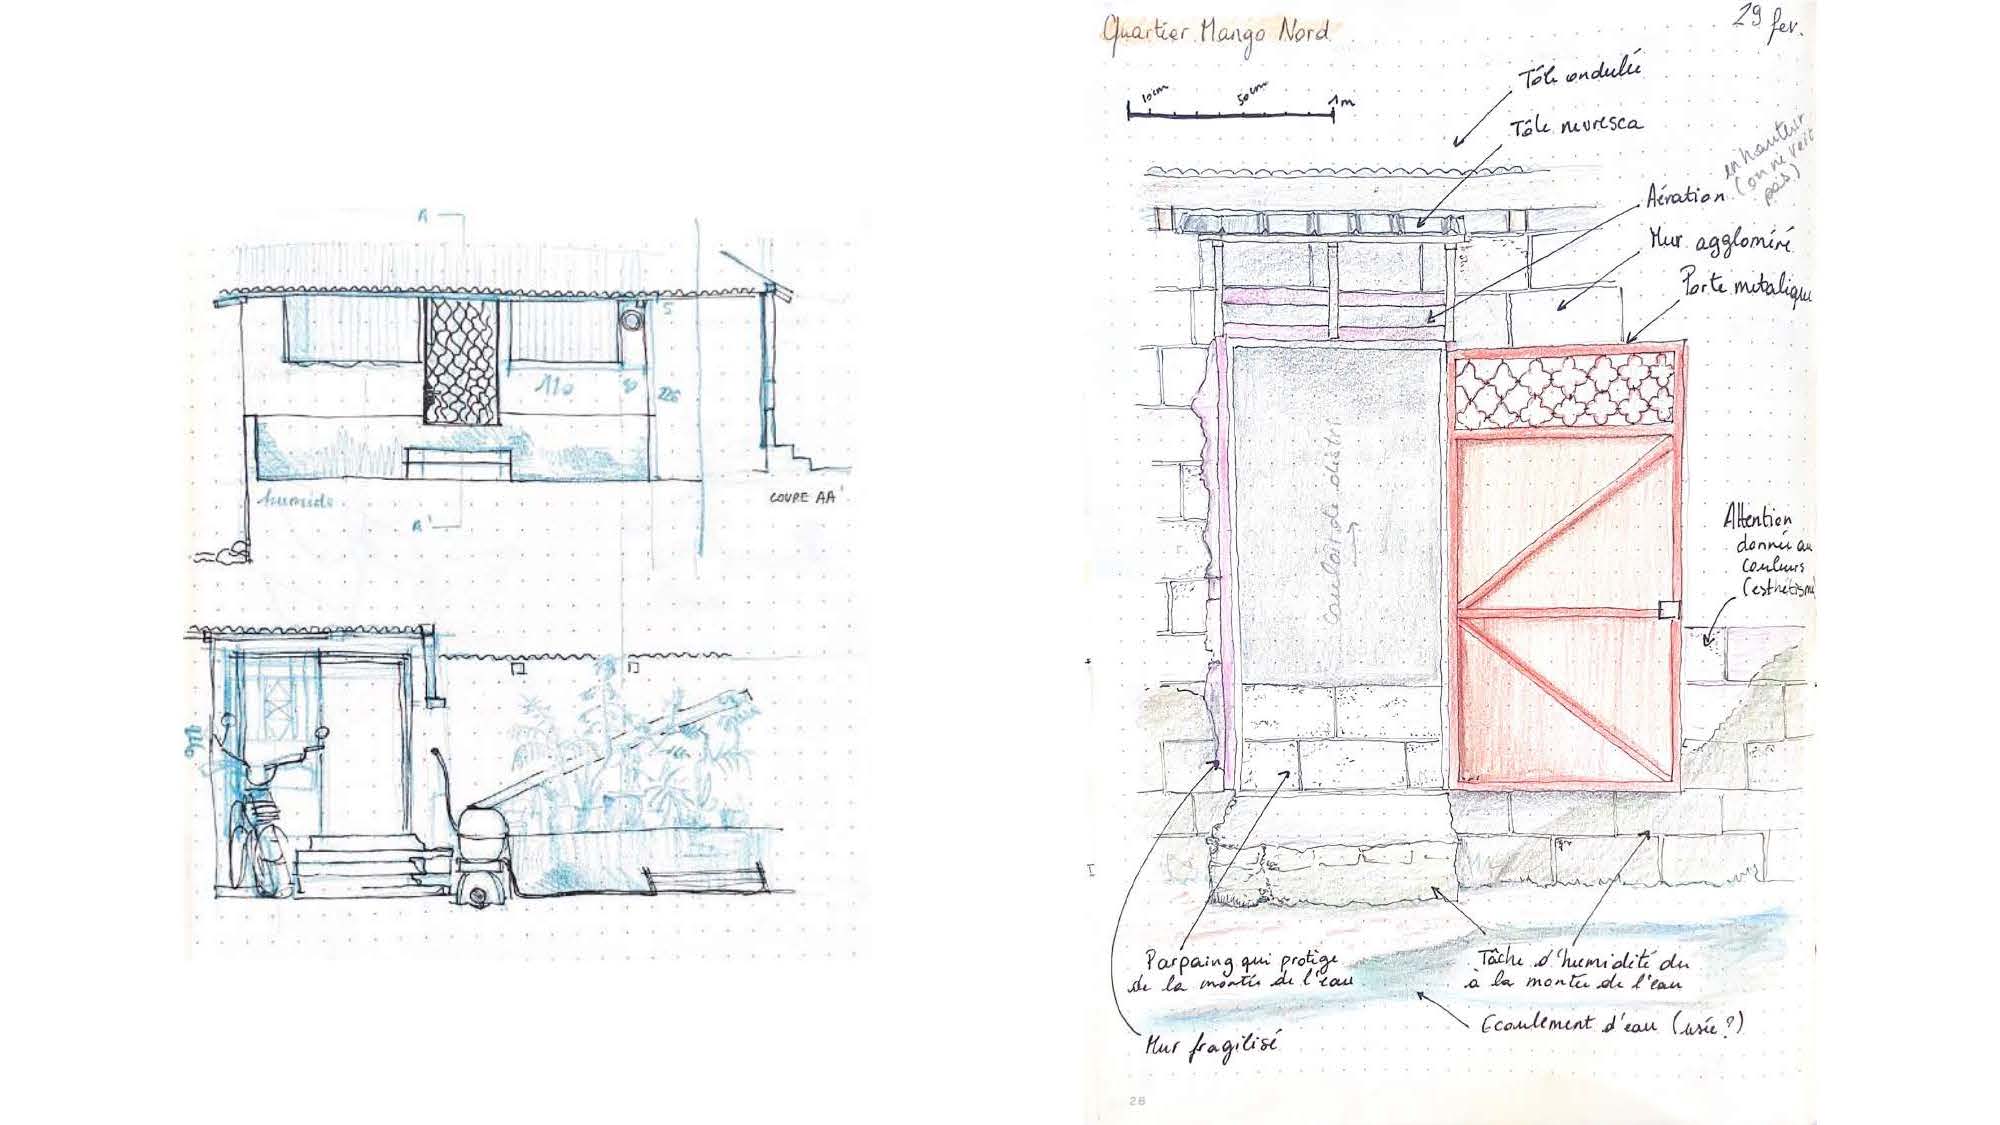 A
5
110
226
humide
A'
COUPE AA'
Quartier Mango Nord
29 fev.
10cm
50cm
1m
Tôle ondulée
Tôle nevresca
en hauteur
(on ne voit
pas)
Aération
Mur aggloméré
Porte metalique
Couloir de distri
Attention
donnée au
couleurs
(esthétisme
Parpaing qui protège
de la montée de l'eau
Tâche d'humidité du
à la montée de l'eau
Ecoulement d'eau (usée?)
Mur fragilisé
28